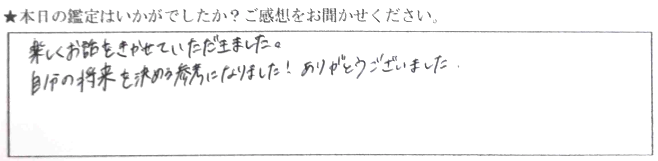 ★本日の鑑定はいかがでしたか？ご感想をお聞かせください。
楽しくお話をきかせていただきました。
自分の将来を決める参考になりました！ありがとうございました.